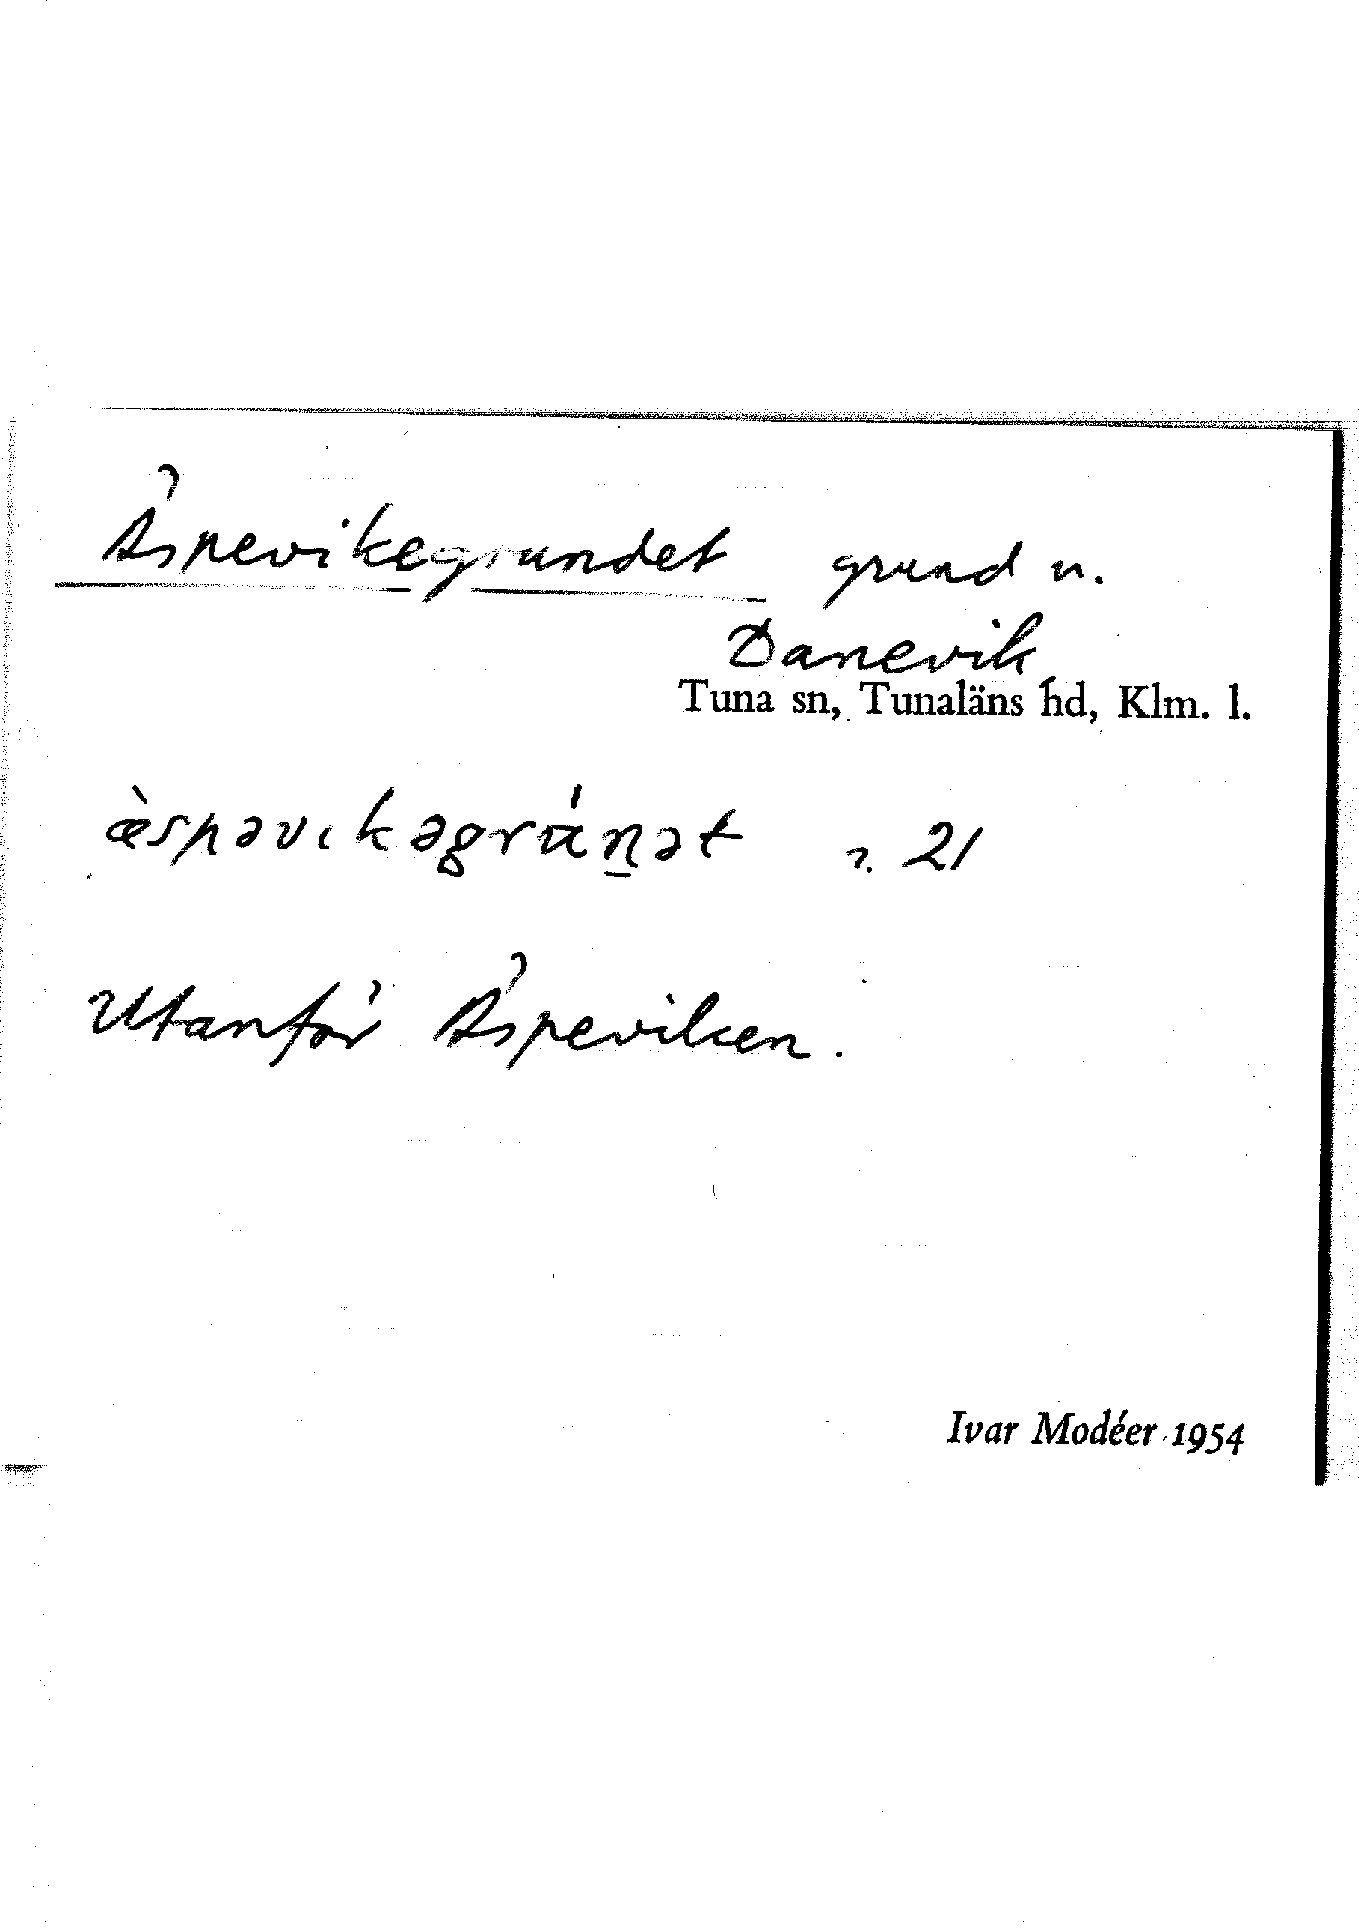 Äspevikegrundet grund u.
Danevik
Tuna sn, Tunaläns hd, Klm. l.
æ̀spəvıkəgrún̲ət 2. 21
Utanför Äspeviken.
Ivar Modéer 1954